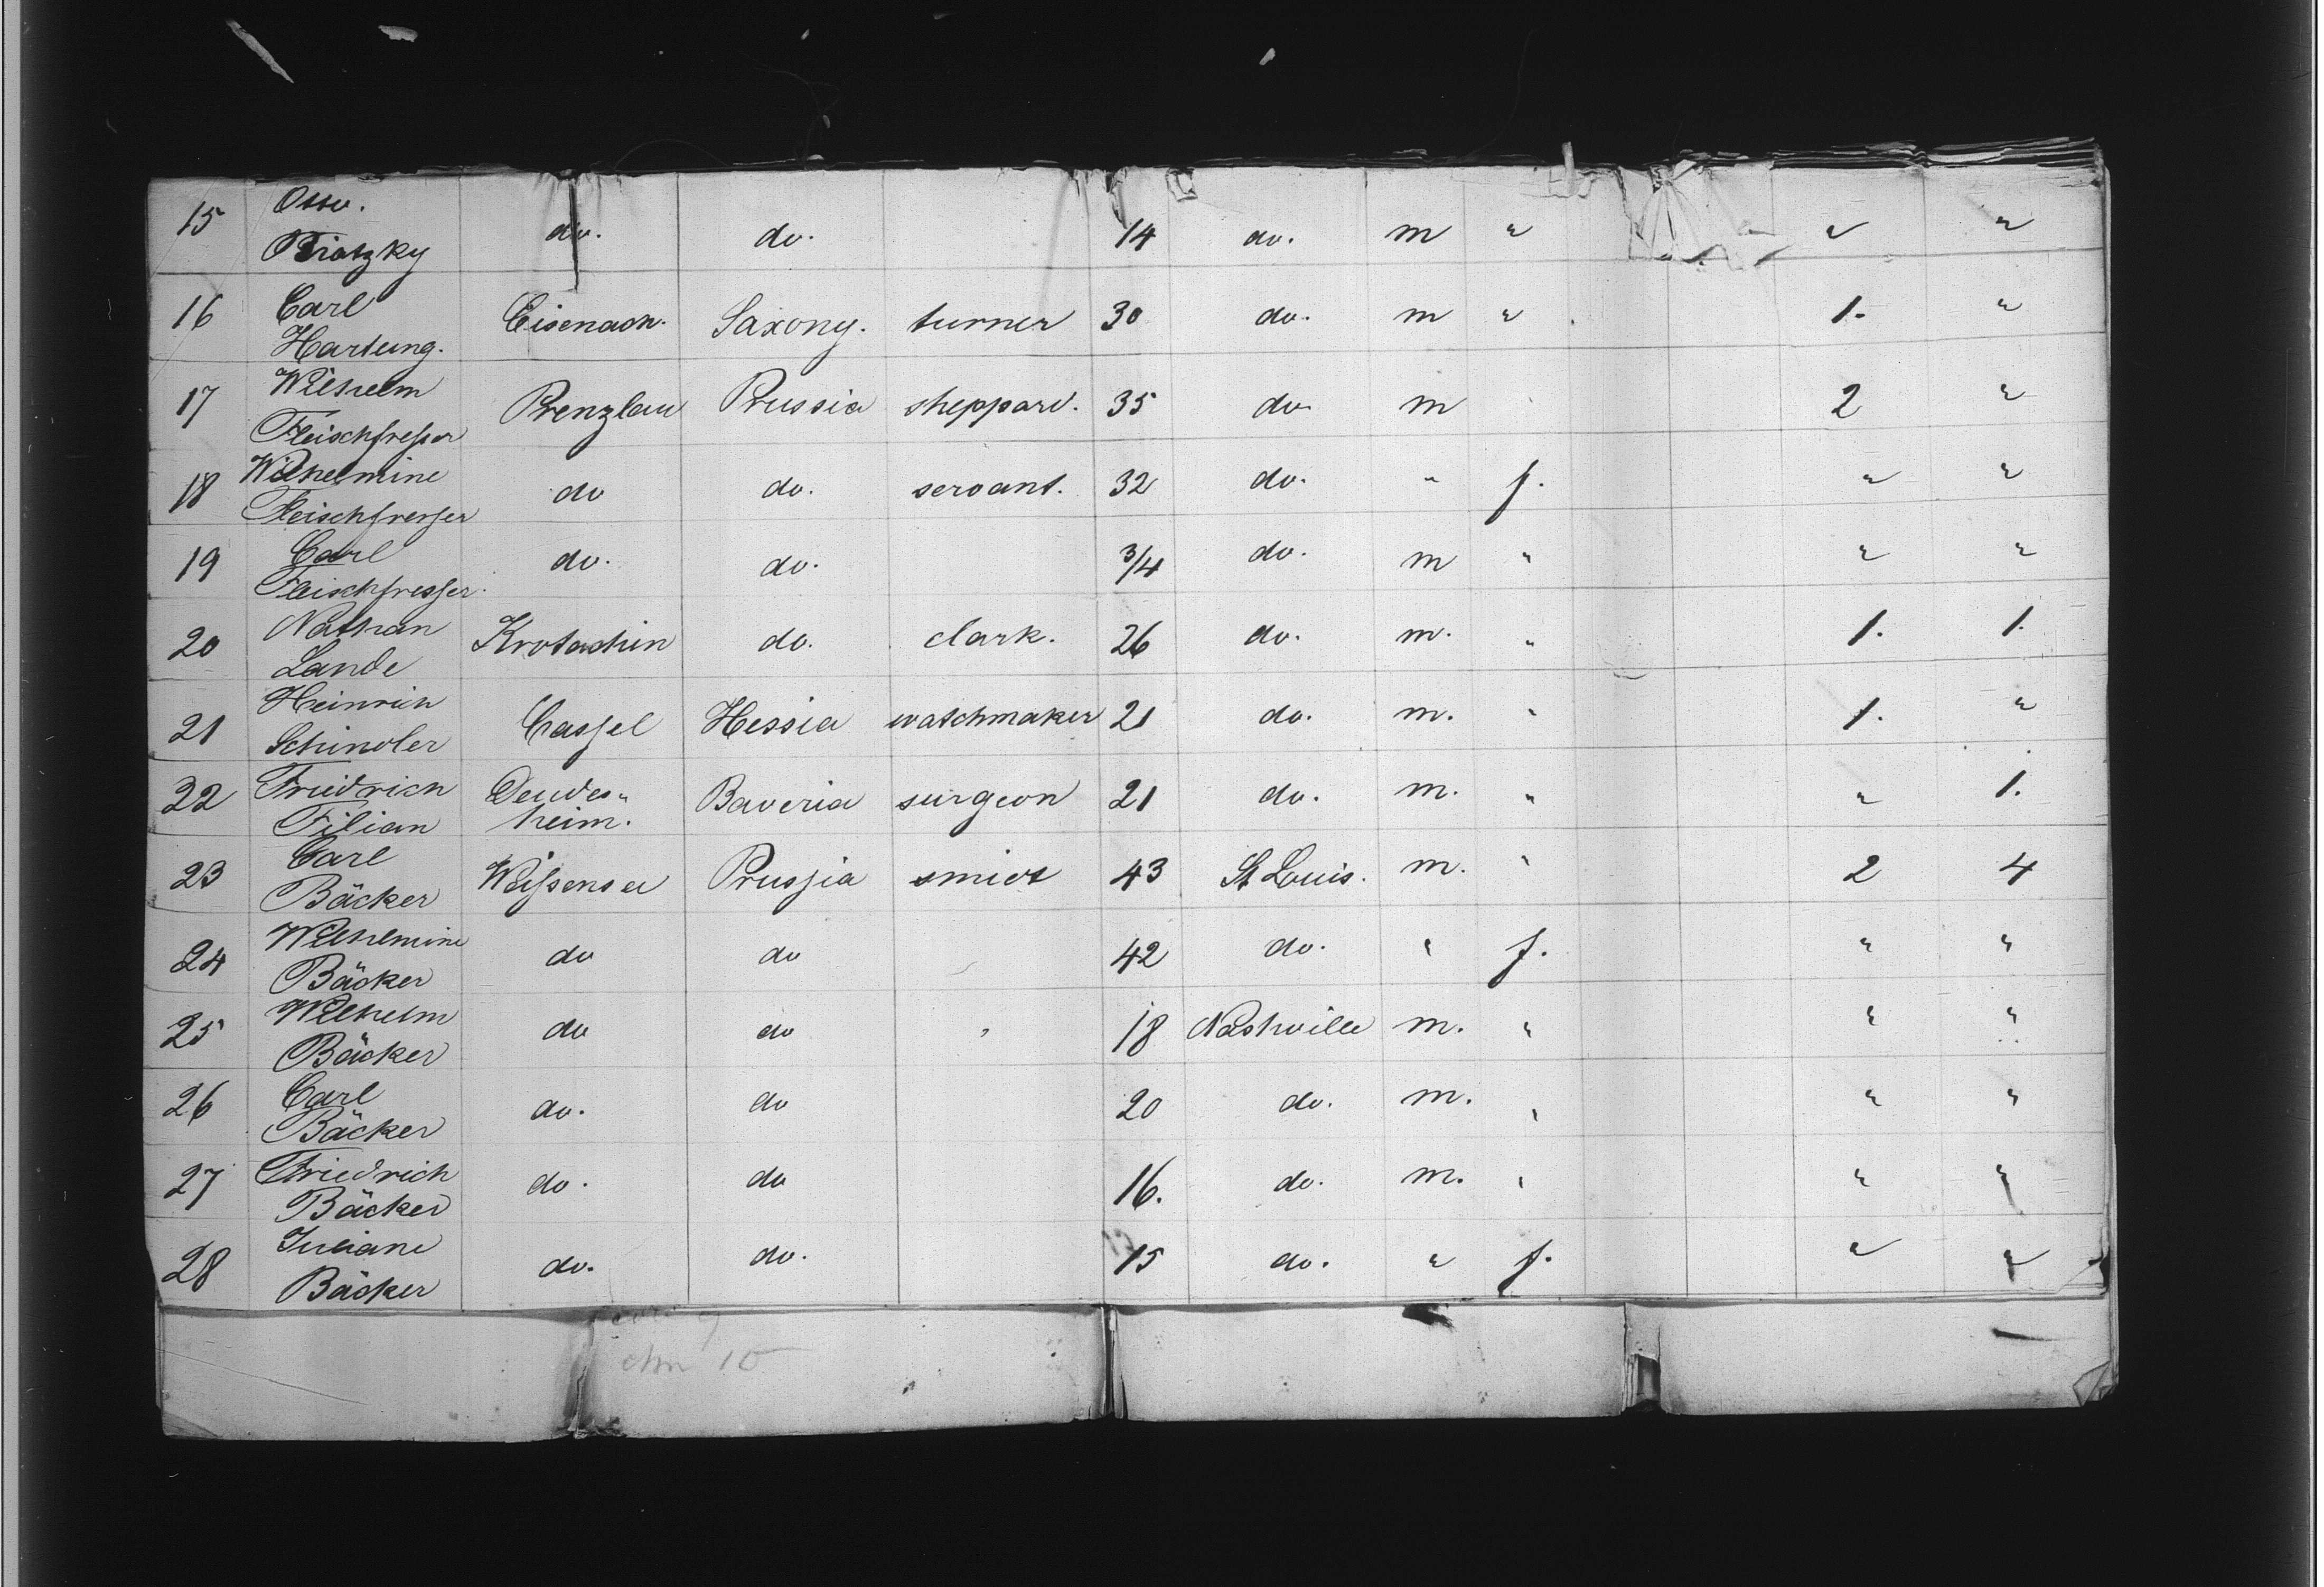 15 Otto. Piatzky do. do. 14 do. m " " "
16 Carl Hartung. Eisenach. Saxony. turner 30 do. m " 1. "
17 Wilhelm Fleischfresser Prenzlau Prussia sheppard. 35 do. m 2 "
18 Wilhelmine Fleischfresser do do. servant. 32 do. " f. " "
19 Carl Fleischfresser. do. do. 3/4 do. m " " "
20 Nathan Lande Krotoschin do. clark. 26 do. m. " 1. 1.
21 Heinrich Schindler Cassel Hessia watchmaker 21 do. m. " 1. "
22 Friedrich Filian Deudes„ heim. Baveria surgeon 21 do. m. " " 1.
23 Carl Bäcker Weissensee Prussia smidt 43 St Louis. m. " 2 4
24 Wilhelmine Bäcker do do 42 do. " f. " "
25 Wilhelm Bäcker do do " 18 Nashville m. " " "
26 Carl Bäcker do. do 20 do. m. " " "
27 Friedrich Bäcker do. do 16. do. m. " " "
28 Juliane Bäcker do. do. 15 do. " f. " "
10